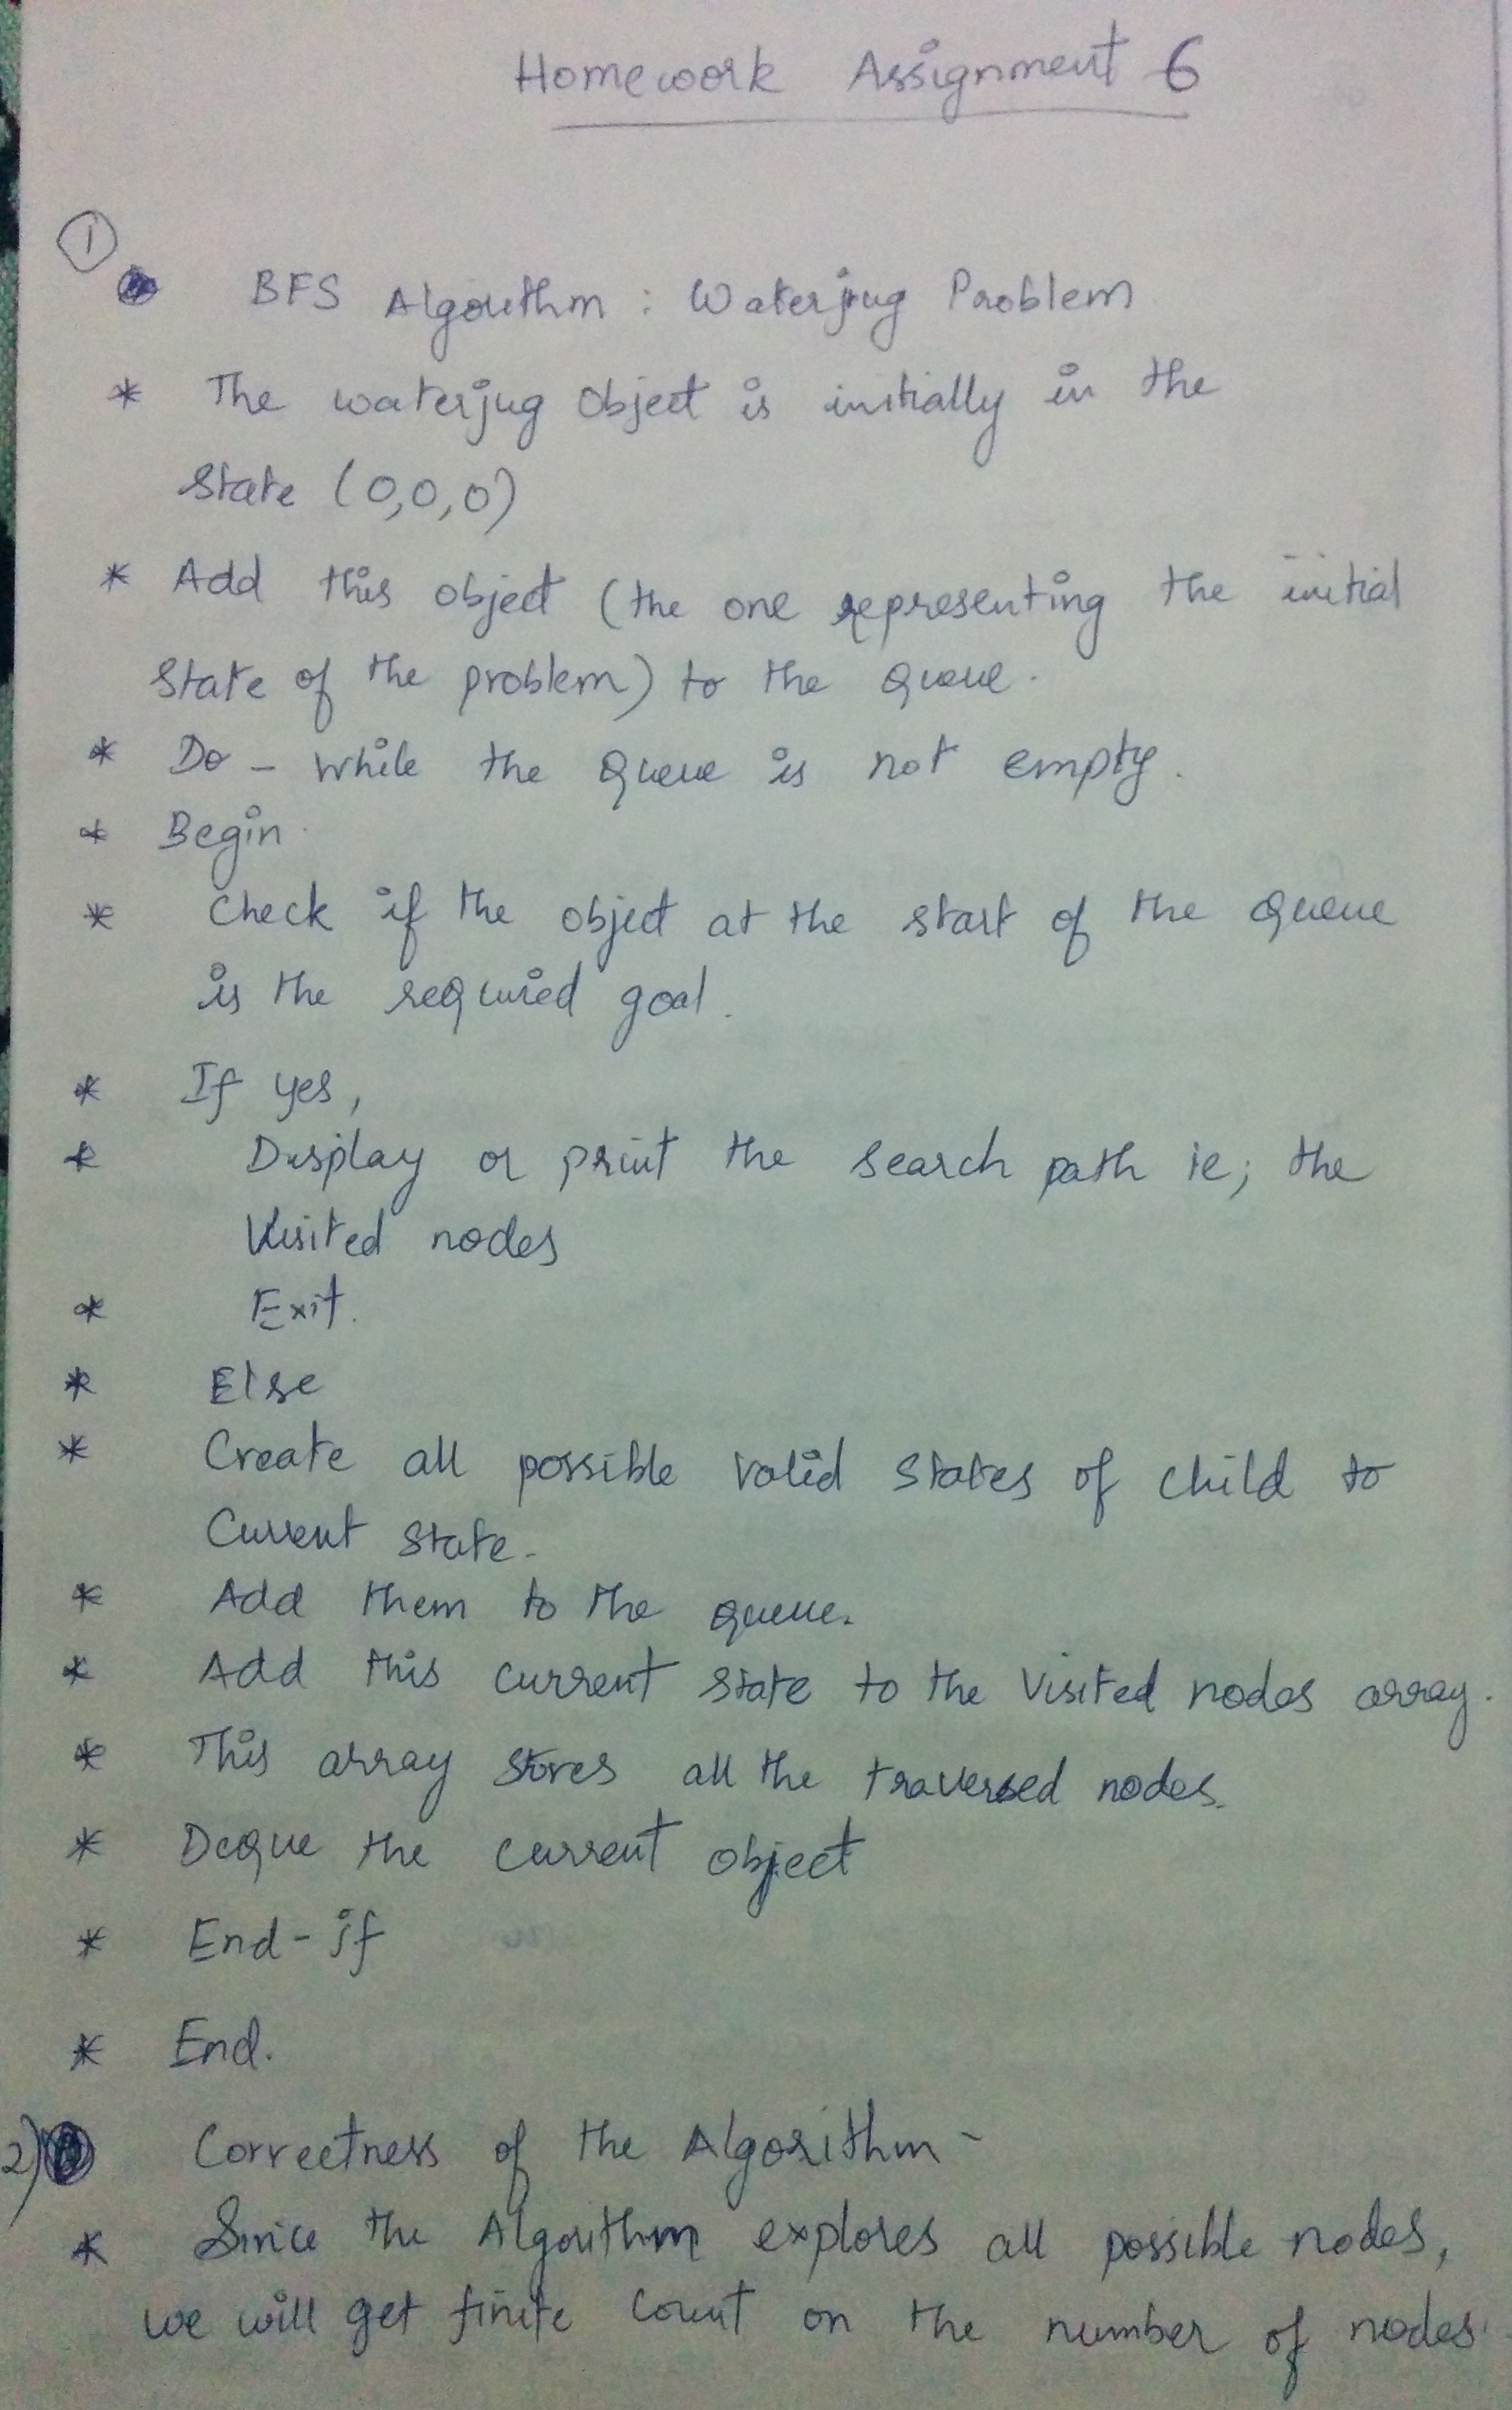 Homework Assignment 6
1
BFS Algorithm : Waterjug Problem
* The waterjug object is initially in the
state (0,0,0)
* Add this object (the one representing the initial
state of the problem) to the queue.
* Do - While the queue is not empty.
* Begin
* Check if the object at the start of the queue
is the required goal.
* If yes,
* Display or print the search path ie; the
Visited nodes
* Exit.
* Else
* Create all possible valid states of child to
Current state.
* Add them to the queue.
* Add this current state to the Visited nodes array.
* This array stores all the traversed nodes.
* Deque the current object
* End-if
* End.
2) Correctness of the Algorithm -
* Since the Algorithm explores all possible nodes,
we will get finite count on the number of nodes